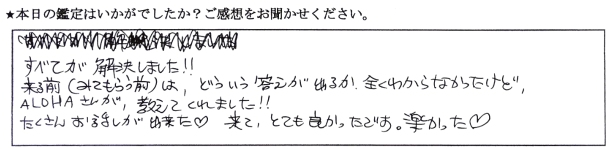 ★本日の鑑定はいかがでしたか？ご感想をお聞かせください。
すべてが解決しました!!
来る前(みてもらう前)は、どういう答えが出るか、全くわからなかったけど、
ALOHAさんが、教えてくれました!!
たくさんお話しが出来た♡ 来て、とても良かったです。楽かった♡